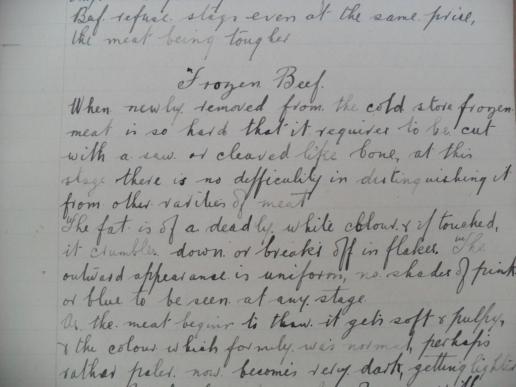 Baf. refuse stags even at the same price,
the meat being tougher
"Frozen Beef.
When newly removed from the cold store frozen
meat is so hard that it requires to be cut
with a saw or cleaved like bone, at this
stage there is no difficulity in distinguishing it
from other varities of meat
The fat is of a deadly white colour & if touched,
it crumbles down or breaks off in flakes. The
outward appearance is uniform, no shades of pink
or blue to be seen at any stage
As the meat begins to thaw it gets soft & pulpy,
& the colour which formily was normal, perhaps
rather paler now becomes very dark, getting lighter